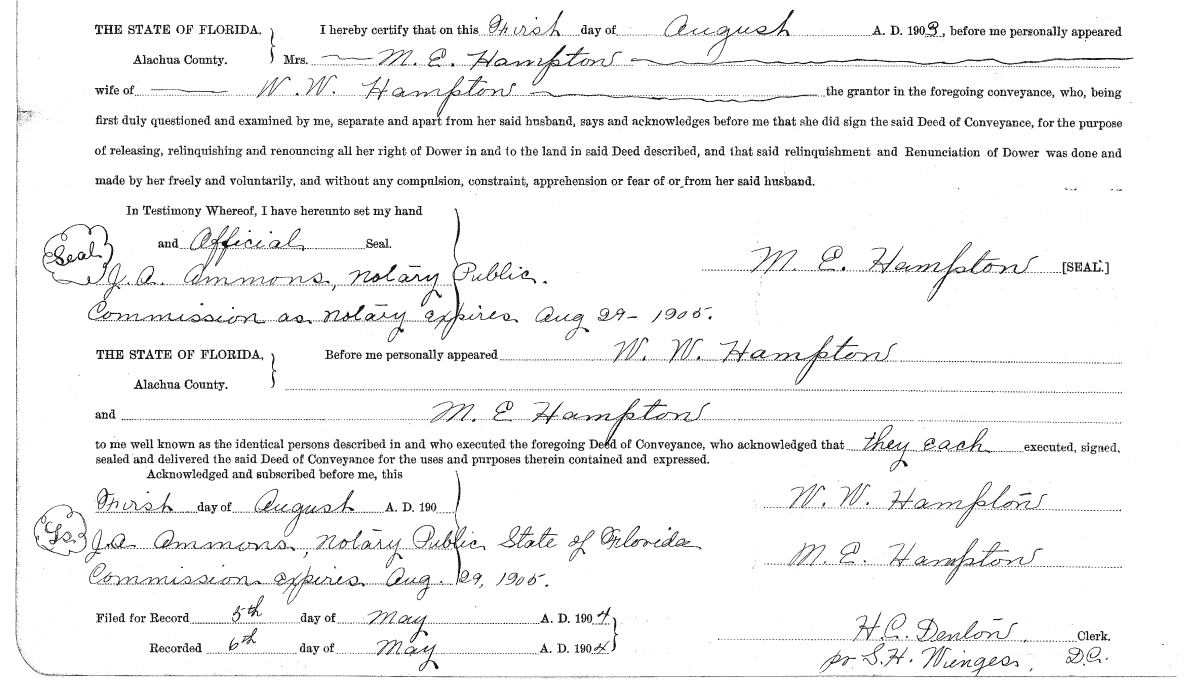 THE STATE OF FLORIDA, } I hereby certify that on this First day of August A. D. 1903, before me personally appeared
Alachua County. Mrs. M. E. Hampton
wife of W. W. Hampton the grantor in the foregoing conveyance, who, being
first duly questioned and examined by me, separate and apart from her said husband, says and acknowledges before me that she did sign the said Deed of Conveyance, for the purpose
of releasing, relinquishing and renouncing all her right of Dower in and to the land in said Deed described, and that said relinquishment and Renunciation of Dower was done and
made by her freely and voluntarily, and without any compulsion, constraint, apprehension or fear of or from her said husband.
In Testimony Whereof, I have hereunto set my hand
and Official Seal.
Seal
J. A. Ammons, Notary Public.
M. E. Hampton [SEAL.]
Commission as notary expires Aug 29 - 1905.
THE STATE OF FLORIDA, } Before me personally appeared W. W. Hampton
Alachua County.
and M. E Hampton
to me well known as the identical persons described in and who executed the foregoing Deed of Conveyance, who acknowledged that they each executed, signed,
sealed and delivered the said Deed of Conveyance for the uses and purposes therein contained and expressed.
Acknowledged and subscribed before me, this
First day of August A. D. 190
W. W. Hampton
Ls.
J. A. Ammons, Notary Public State of Florida
M. E. Hampton
Commission expires Aug. 29, 1905.
Filed for Record 5th day of May A. D. 1904
H. C. Denton, Clerk.
Recorded 6th day of May A. D. 1904
pr S. H. Wienges, D.C.